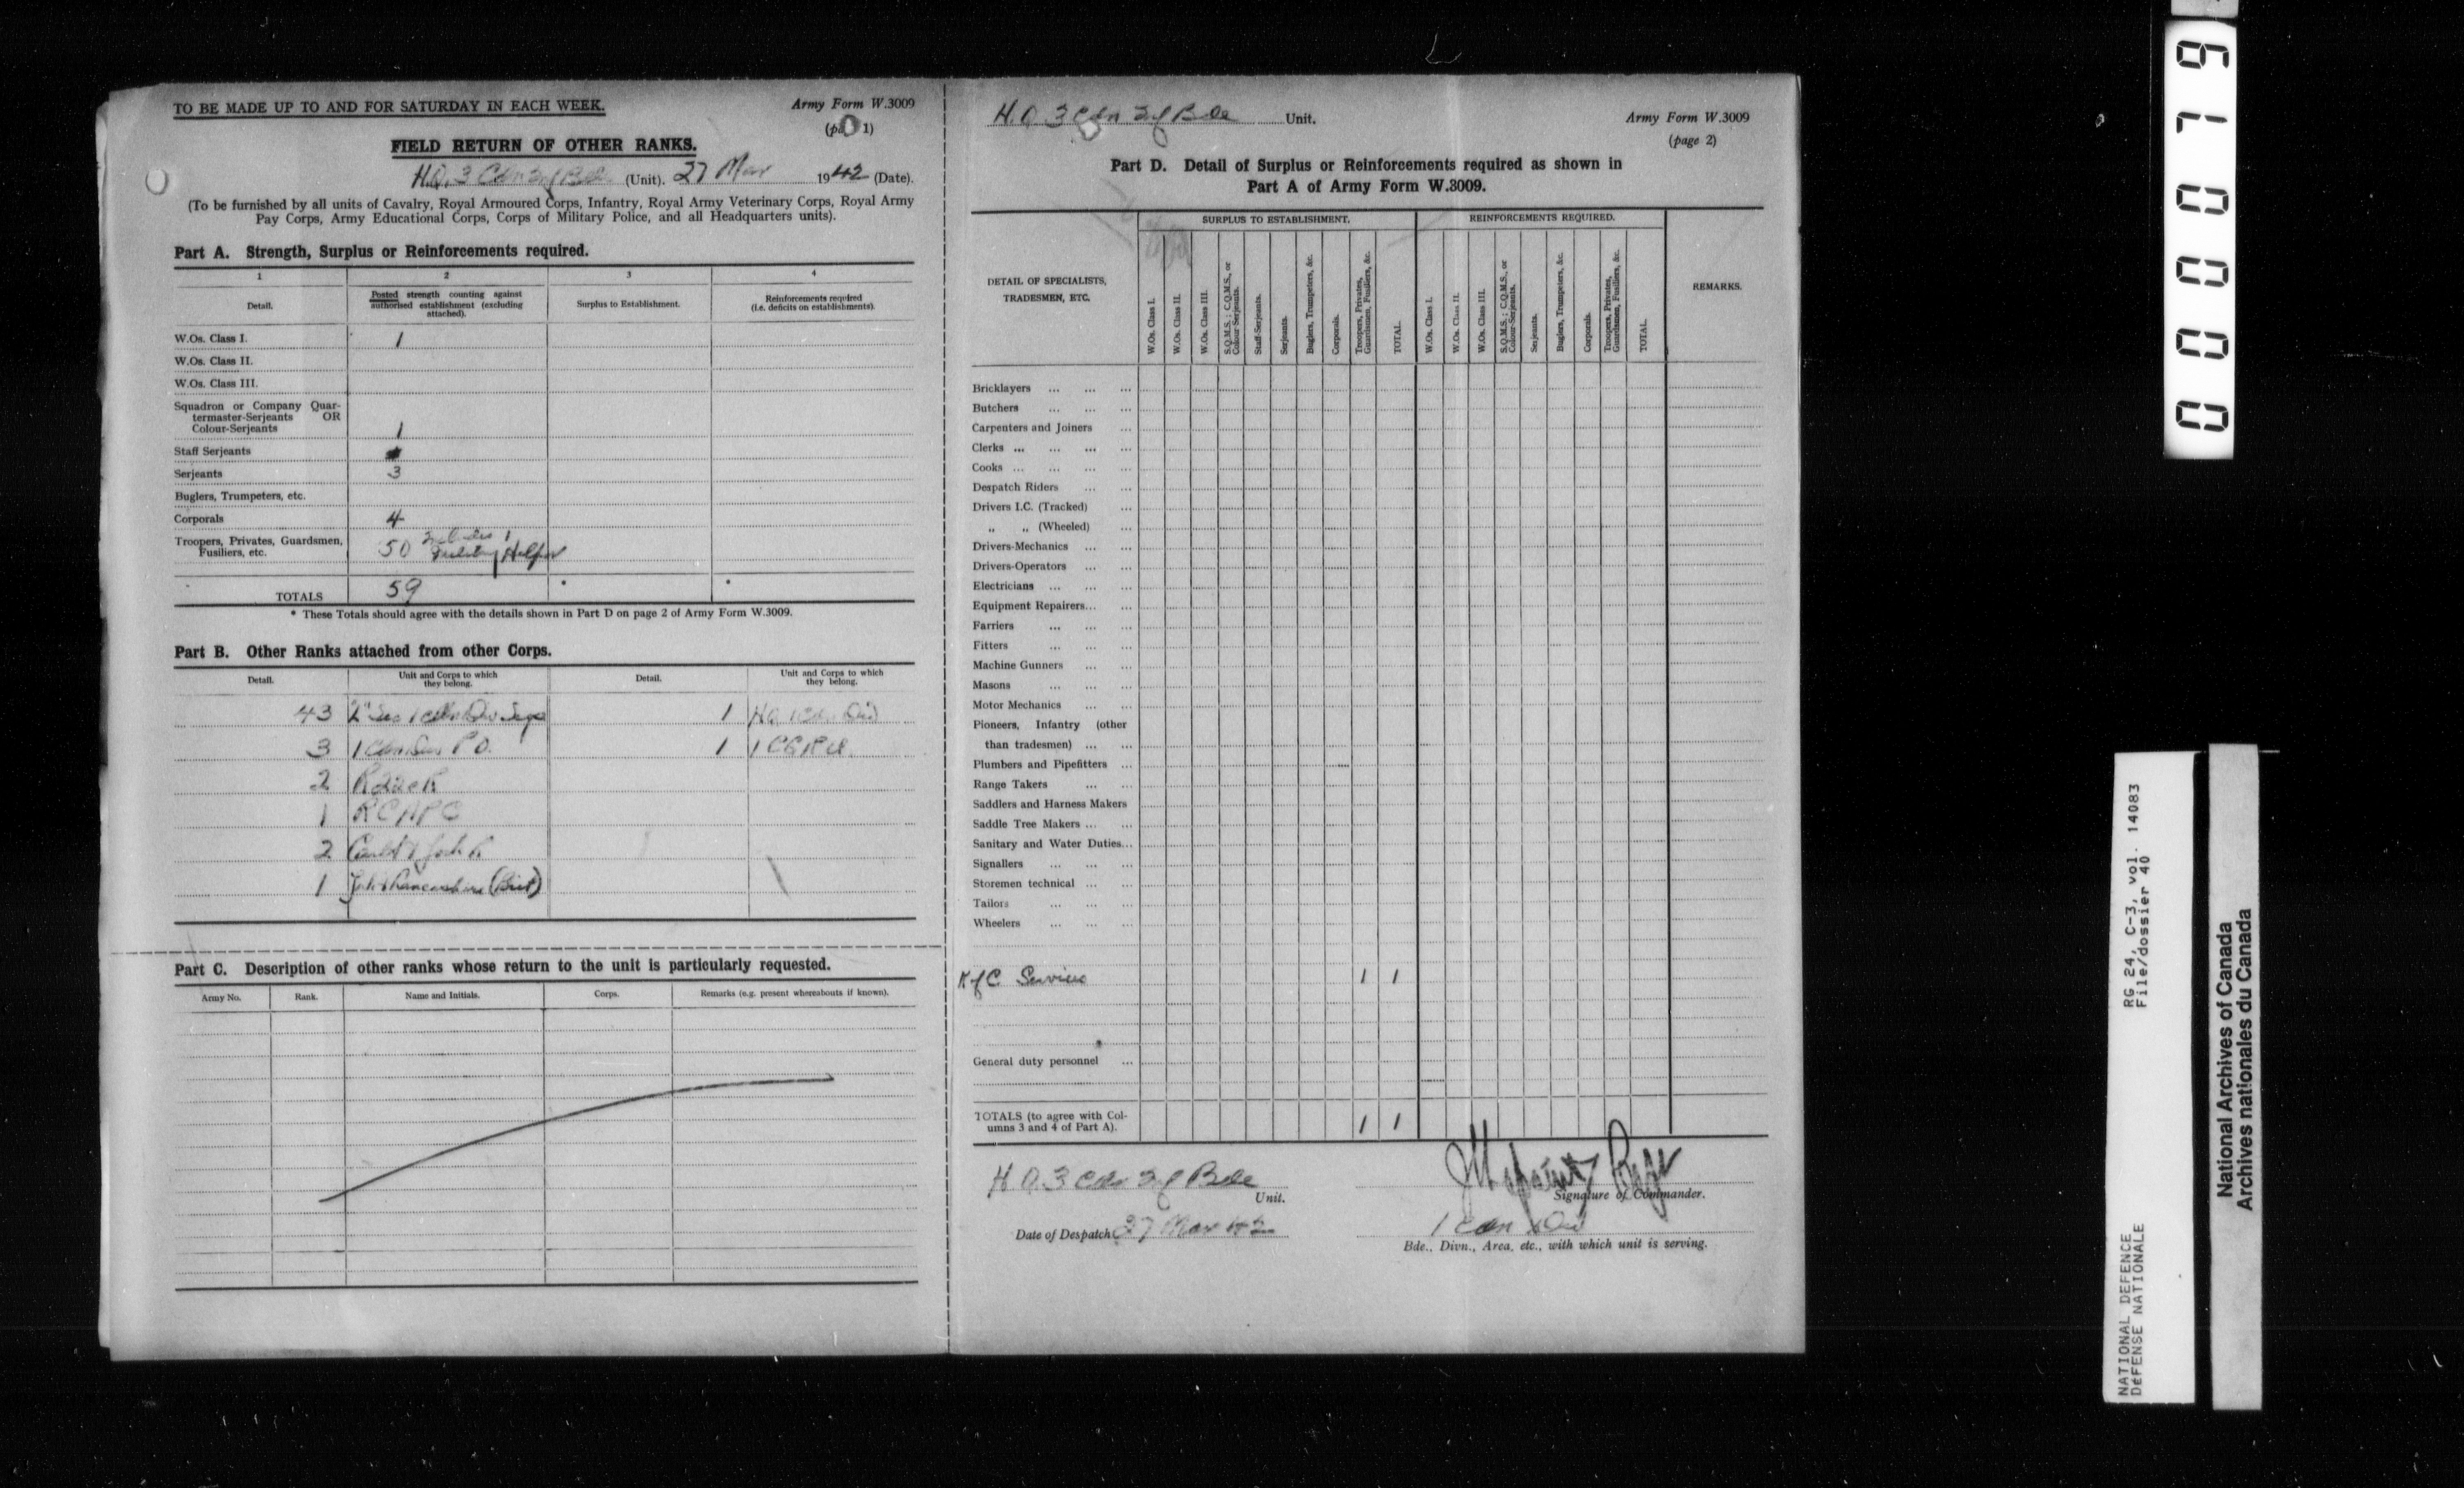 TO BE MADE UP TO AND FOR SATURDAY IN EACH WEEK.
Army Form W.3009
1)
FIELD RETURN OF OTHER RANKS.
H.Q. 3 Cdn Inf Bde (Unit). 27 Mar 1942 (Date).
(To be furnished by all units of Cavalry, Royal Armoured Corps, Infantry, Royal Army Veterinary Corps, Royal Army
Pay Corps, Army Educational Corps, Corps of Military Police, and all Headquarters units).
Part A. Strength, Surplus or Reinforcements required.
1 2 3 4
Detail.
Posted strength counting against
authorised establishment (excluding
attached).
Surplus to Establishment.
Reinforcements required
(i.e. deficits on establishments).
W.Os. Class I. 1
W.Os. Class II.
W.Os. Class III.
Squadron or Company Quar-
termaster-Serjeants OR
Colour-Serjeants 1
Staff Serjeants
Serjeants 3
Buglers, Trumpeters, etc.
Corporals 4
Troopers, Privates, Guardsmen,
Fusiliers, etc. 50
TOTALS 59 * *
* These Totals should agree with the details shown in Part D on page 2 of Army Form W.3009.
Part B. Other Ranks attached from other Corps.
Detail.
Unit and Corps to which
they belong.
Detail.
Unit and Corps to which
they belong.
43 1 Cdn Div Sigs 1 HQ 1 Cdn Div
3 1 Cdn P O. 1 1 CGRU.
2 R22eR
1 RCAPC
2 Carlt & York R
1
Part C. Description of other ranks whose return to the unit is particularly requested.
Army No. Rank. Name and Initials. Corps. Remarks (e.g. present whereabouts if known).
H.Q 3 Cdn Inf Bde Unit.
Army Form W.3009
(page 2)
Part D. Detail of Surplus or Reinforcements required as shown in
Part A of Army Form W.3009.
SURPLUS TO ESTABLISHMENT.
REINFORCEMENTS REQUIRED.
DETAIL OF SPECIALISTS,
TRADESMEN, ETC.
W.Os. Class I.
W.Os. Class II.
W.Os. Class III.
S.Q.M.S.; C.Q.M.S., or
Colour-Serjeants.
Staff-Serjeants.
Serjeants.
Buglers, Trumpeters, &c.
Corporals.
Troopers, Privates,
Guardsmen, Fusiliers, &c.
TOTAL.
W.Os. Class I.
W.Os. Class II.
W.Os. Class III.
S.Q.M.S.; C.Q.M.S., or
Colour-Serjeants.
Serjeants.
Buglers, Trumpeters, &c.
Corporals.
Troopers, Privates,
Guardsmen, Fusiliers, &c.
TOTAL.
REMARKS.
Bricklayers ... ... ...
Butchers ... ... ...
Carpenters and Joiners ...
Clerks ... ... ... ...
Cooks ... ... ... ...
Despatch Riders ... ...
Drivers I.C. (Tracked) ...
„ „ (Wheeled) ...
Drivers-Mechanics ... ...
Drivers-Operators ... ...
Electricians ... ... ...
Equipment Repairers... ...
Farriers ... ... ...
Fitters ... ... ...
Machine Gunners ... ...
Masons ... ... ...
Motor Mechanics ... ...
Pioneers, Infantry (other
than tradesmen) ... ...
Plumbers and Pipefitters ...
Range Takers ... ...
Saddlers and Harness Makers
Saddle Tree Makers ... ...
Sanitary and Water Duties...
Signallers ... ... ...
Storemen technical ... ...
Tailors ... ... ...
Wheelers ... ... ...
K of C Services 1 1
General duty personnel ...
TOTALS (to agree with Col-
umns 3 and 4 of Part A). 1 1
H.Q. 3 Cdn Inf Bde
Unit.
Signature of Commander.
Date of Despatch 27 Mar 42
1 Cdn Div
Bde., Divn., Area, etc., with which unit is serving.
0000719
RG 24, C-3, vol. 14083
File/dossier 40
NATIONAL DEFENCE
DÉFENSE NATIONALE
National Archives of Canada
Archives nationales du Canada